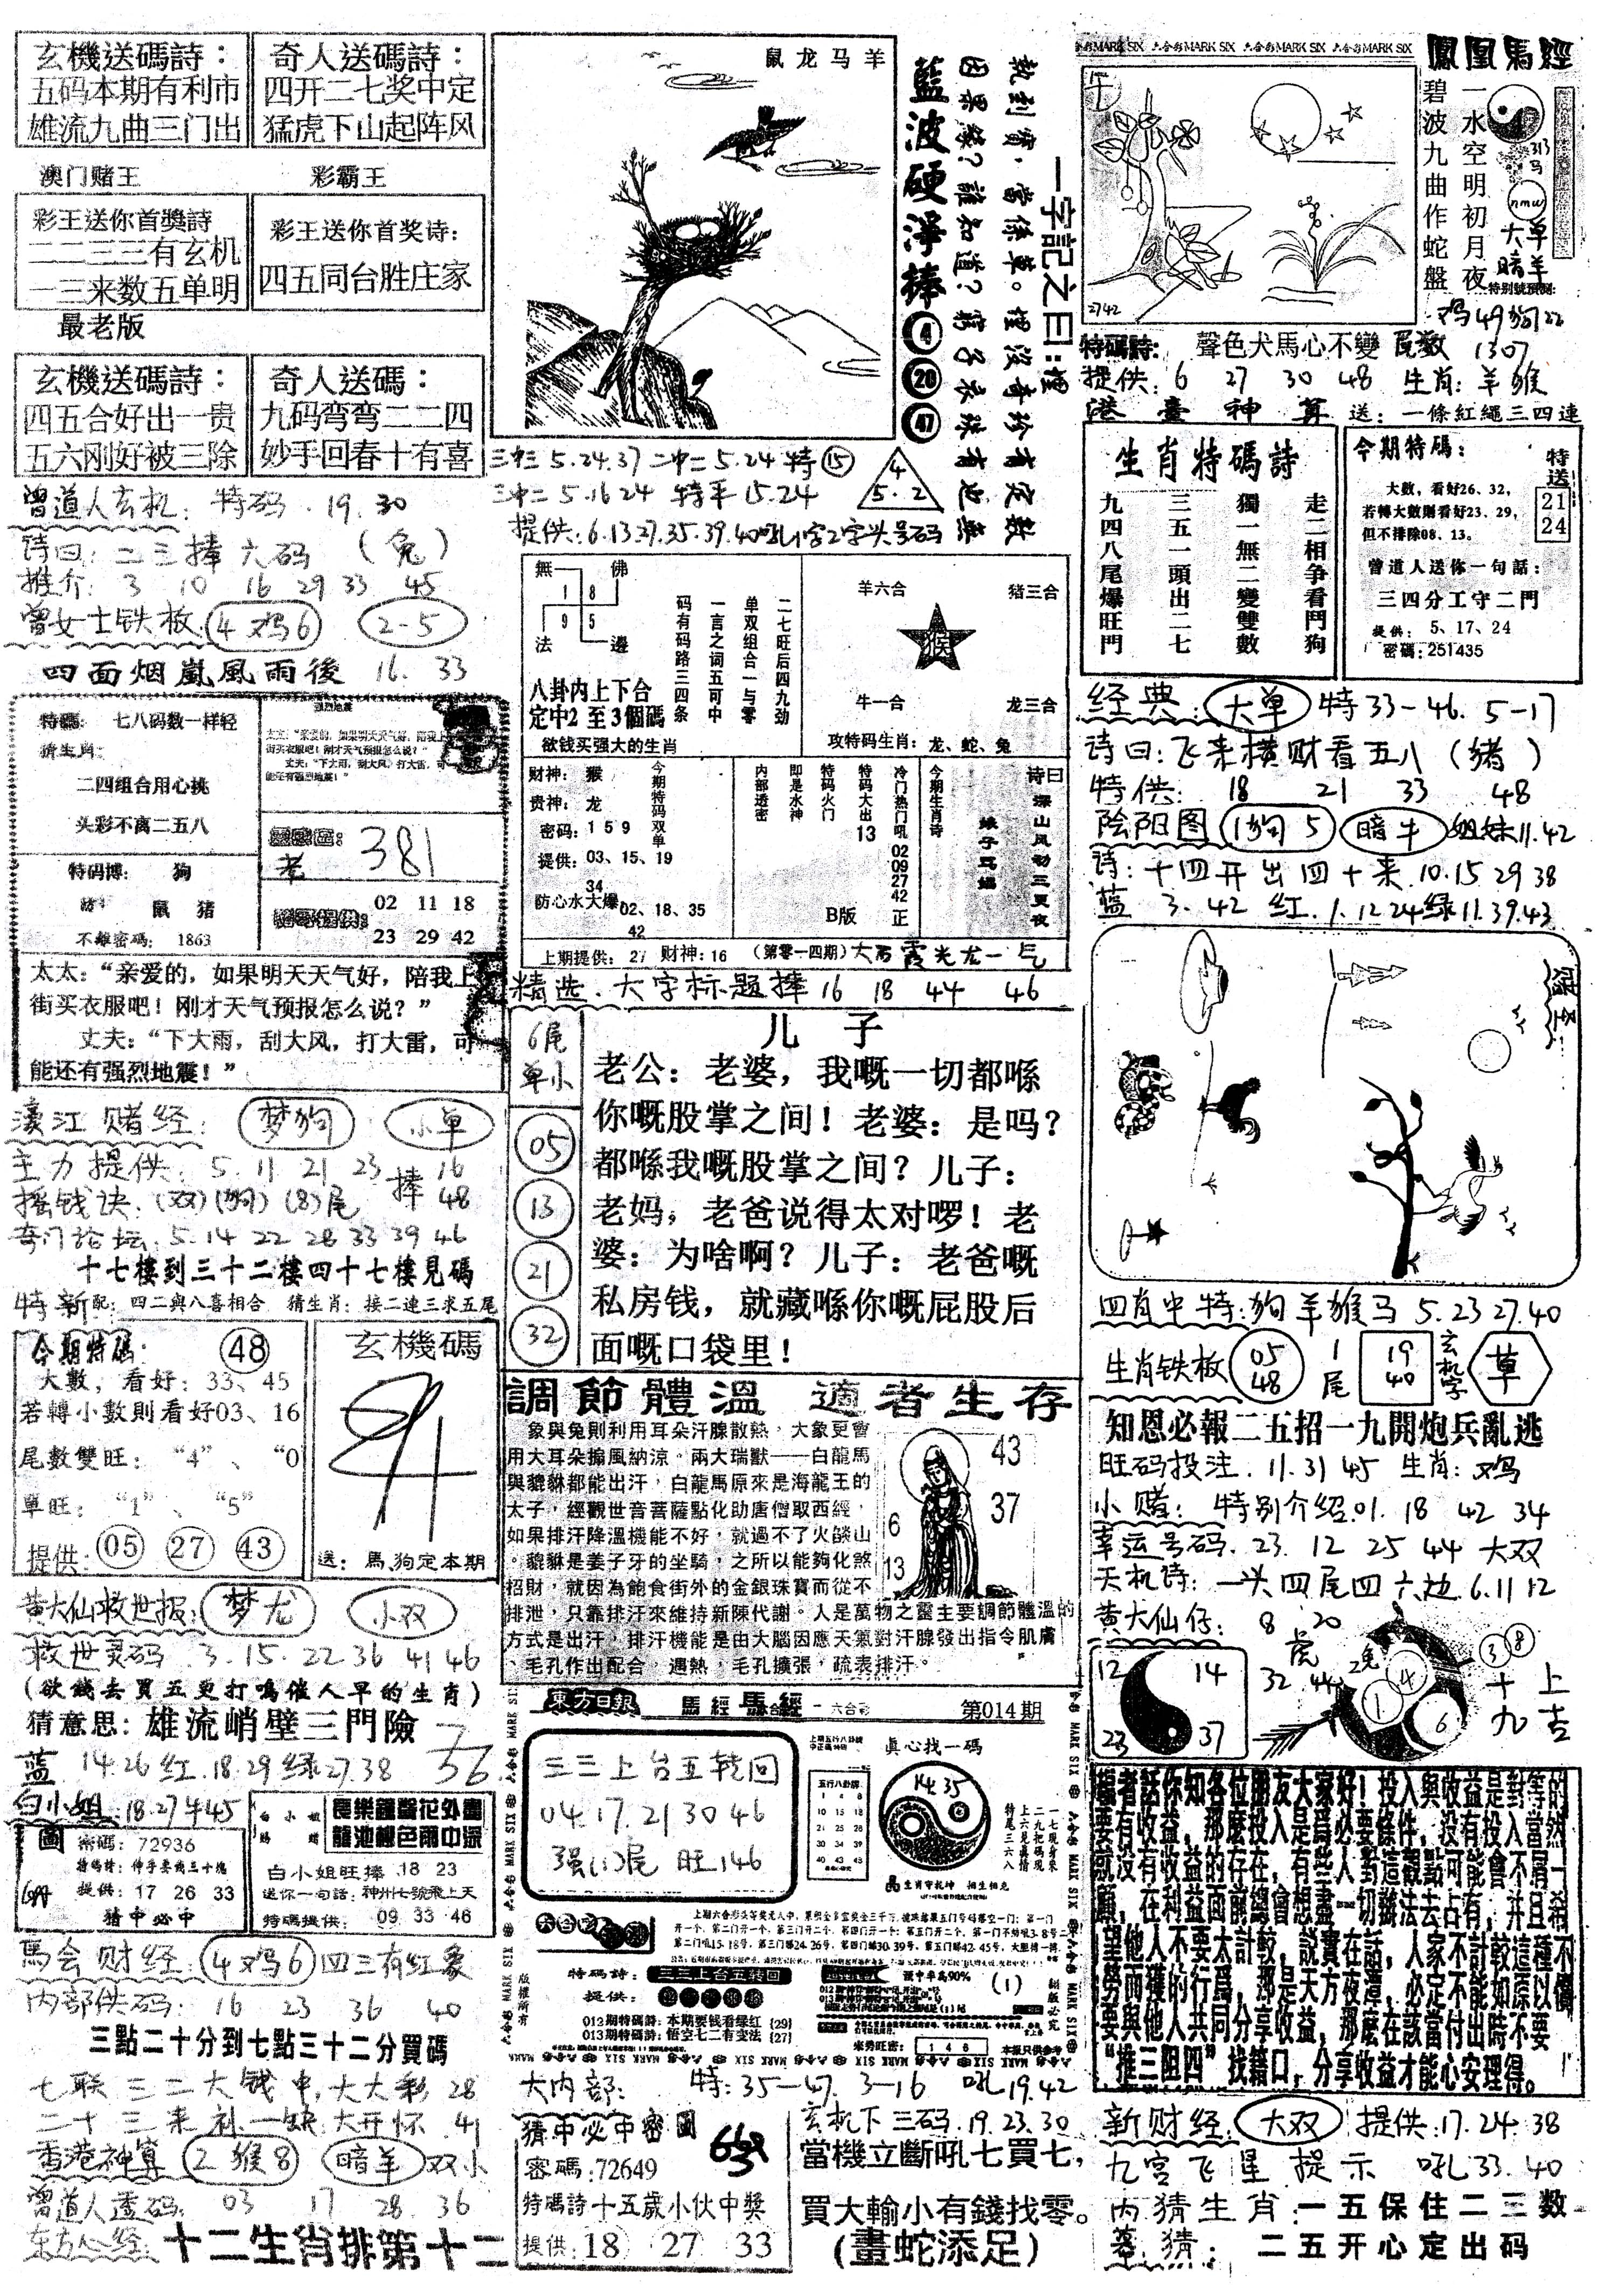 玄機送碼詩：
五码本期有利市
雄流九曲三门出
奇人送碼詩：
四开二七奖中定
猛虎下山起阵风
澳门赌王
彩霸王
彩王送你首獎詩
二二三三有玄机
一三来数五单明
彩王送你首奖诗：
四五同台胜庄家
最老版
玄機送碼詩：
四五合好出一贵
五六刚好被三除
奇人送碼：
九码弯弯二二四
妙手回春十有喜
曾道人玄机：特码.19.30
诗曰：二三捧六码（兔）
推介：3 10 16 29 33 45
曾女士铁板 4鸡6 2-5
四面烟嵐風雨後 16.33
特碼：七八码数一样轻
猜生肖：
二四组合用心挑
头彩不离二五八
特码博：狗
鼠 猪
不離密碼：1863
381
02 11 18
23 29 42
太太：“亲爱的，如果明天天气好，陪我上
街买衣服吧！刚才天气预报怎么说？”
丈夫：“下大雨，刮大风，打大雷，可
能还有强烈地震！”
濠江赌经：梦狗 小单
主力提供.5.11 21 23 捧 16
摇钱诀.(双)(狗)(8)尾 48
奇门论坛.5.14 22 28 33 39 46
十七樓到三十二樓四十七樓見碼
特新配：四二與八喜相合 猜生肖：接二連三求五尾
今期特碼： 48
大數，看好：33、45
若轉小數則看好03、16
尾數雙旺：“4”、“0
單旺：“1”、“5”
提供：05 27 43
玄機碼
送：馬,狗定本期
黄大仙救世报：梦龙 小双
救世灵码.3.15.22 36 41 46
(欲錢去買五更打鳴催人早的生肖)
猜意思：雄流峭壁三門險
蓝 14.26 红.18.29 绿27.38
白小姐.18.27 牛45
圖
密碼：72936
特碼詩：伸手要钱三十塊
提供：17 26 33
猜中必中
白小姐旺捧 18 23
送你一句話：神州七號飛上天
特碼提供：09 33 46
馬会财经 4鸡6 四三有红象
内部供码：16 23 36 40
三點二十分到七點三十二分買碼
七联三二大钱中,大大彩 28
二十三来补一缺大开怀 41
香港神算 2猴8 暗羊 双小
曾道人透码：03 17 28 36
东方心经：十二生肖排第十二
鼠龙马羊
藍波硬淨捧 4 20 47
一字記之曰:埋
執到寶，當係草。埋沒奇珍有定數
因果緣？誰知道？窮子衣珠有也無
三中三 5.24.37 二中二 5.24 特15
三中二 5.16 24 特平 15.24
4
5.2
提供:6.13 27.35.39.40吼1字2字头号码
無 佛
1 8
9 5
法 邊
八卦内上下合
定中2至3個碼
二七旺后四九劲
单双组合一与零
一言之词五可中
码有码路三四条
欲钱买强大的生肖
羊六合 猪三合
猴
牛一合 龙三合
攻特码生肖：龙、蛇、兔
财神：猴
贵神：龙
密码：159
提供：03、15、19
34
防心水大爆02、18、35
42
今期特码双单
内部透密
即是水神
特码火门
特码大出
13
冷门热门吼 02 09 27 42 正
B版
今期生肖诗
诗曰
深山风动三更夜
上期提供：27 财神：16 （第零一四期）
精选.大字标题捧 16 18 44 46
6尾
单小
05
13
21
32
儿 子
老公：老婆，我嘅一切都喺
你嘅股掌之间！老婆：是吗？
都喺我嘅股掌之间？儿子：
老妈，老爸说得太对啰！老
婆：为啥啊？儿子：老爸嘅
私房钱，就藏喺你嘅屁股后
面嘅口袋里！
調節體溫 適者生存
象與兔則利用耳朵汗腺散熱，大象更會
用大耳朵搧風納涼。兩大瑞獸——白龍馬
與貔貅都能出汗，白龍馬原來是海龍王的
太子，經觀世音菩薩點化助唐僧取西經，
如果排汗降溫機能不好，就過不了火談山
。貔貅是姜子牙的坐騎，之所以能夠化煞
招財，就因為飽食街外的金銀珠寶而從不
排泄，只靠排汗來維持新陳代謝。人是萬物之靈主要調節體溫的
方式是出汗，排汗機能是由大腦因應天氣對汗腺發出指令肌膚
、毛孔作出配合，遇熱，毛孔擴張，疏表排汗。
43
37
6
13
東方日報 馬經 六合彩 第014期
三三上台五轮回
04.17.21 30 46
强(1)尾 旺146
真心找一碼
14 35
五行八卦牌
生肖守乾坤 相生相克
特碼詩：三三上台五轮回
提供：
012期特碼詩：本期要钱看绿红 {29}
013期特碼詩：悟空七二有变法 {27}
週中率高90%
(1)
版權所有
翻版必究
146
本报只供参考
大内部： 特：35-47. 3-16 吼19.42
猜中必中密圖
密碼：72649
特碼詩十五歲小伙中獎
提供 18 27 33
玄机下三码.19.23.30
當機立斷吼七買七，
買大輸小有錢找零。
(畫蛇添足)
六合彩MARK SIX 六合彩MARK SIX 六合彩MARK SIX
鳳凰馬經
一水空明初月夜
碧波九曲作蛇盤
313
马
大单
暗羊
特别號預測:
鸡49狗22
2742
特碼詩：聲色犬馬心不變 尾数 1307
提供：6 27 30 48 生肖：羊猴
港臺神算 送：一條紅繩三四連
生肖特碼詩
走二相争看鬥狗
獨一無二變雙數
三五一頭出二七
九四八尾爆旺門
今期特碼：
大數，看好26、32，
若轉大數則看好23、29，
但不排除08、13。
特送
21
24
曾道人送你一句話：
三四分工守二門
提供：5、17、24
密碼：251435
经典：大单 特33-46. 5-17
诗曰：飞来横财看五八（豬）
特供：18 21 33 48
陰阳图 1狗5 暗牛 姐妹11.42
诗：十四开出四十来.10.15 29 38
蓝 3.42 红.1.12 24绿11.39.43
赌圣
四肖中特：狗羊猴马 5.23 27.40
生肖铁板 05 48 1尾 19 40 玄机字 草
知恩必報二五招一九開炮兵亂逃
旺码投注.11.31 45 生肖：鸡
小赌：特别介绍.01.18 42 34
幸运号码.23.12 25 44 大双
天机诗：一头四尾四六边.6.11 12
黄大仙仔：8 20
虎
32 44
12 14
23 37
2兔
1 4 6
3 8
十九
上吉
編者話你知各位朋友大家好！投入與收益是對等的
要有收益，那麽投入是爲必要條件，没有投入當然
就没有收益的存在，有些人對這觀點可能會不屑一
顧，在利益面前總會想盡一切辦法去占有，并且希
望他人不要太計較，説實在話，人家不計較這種不
勞而獲的行爲，那是天方夜潭，必定不能如愿以償
要與他人共同分享收益，那麽在該當付出時不要
“推三阻四”找籍口，分享收益才能心安理得。
新财经：大双 提供：17.24.38
九宫飞星提示 吼33.40
内猜生肖：一五保住二三数
幕猜：二五开心定出码